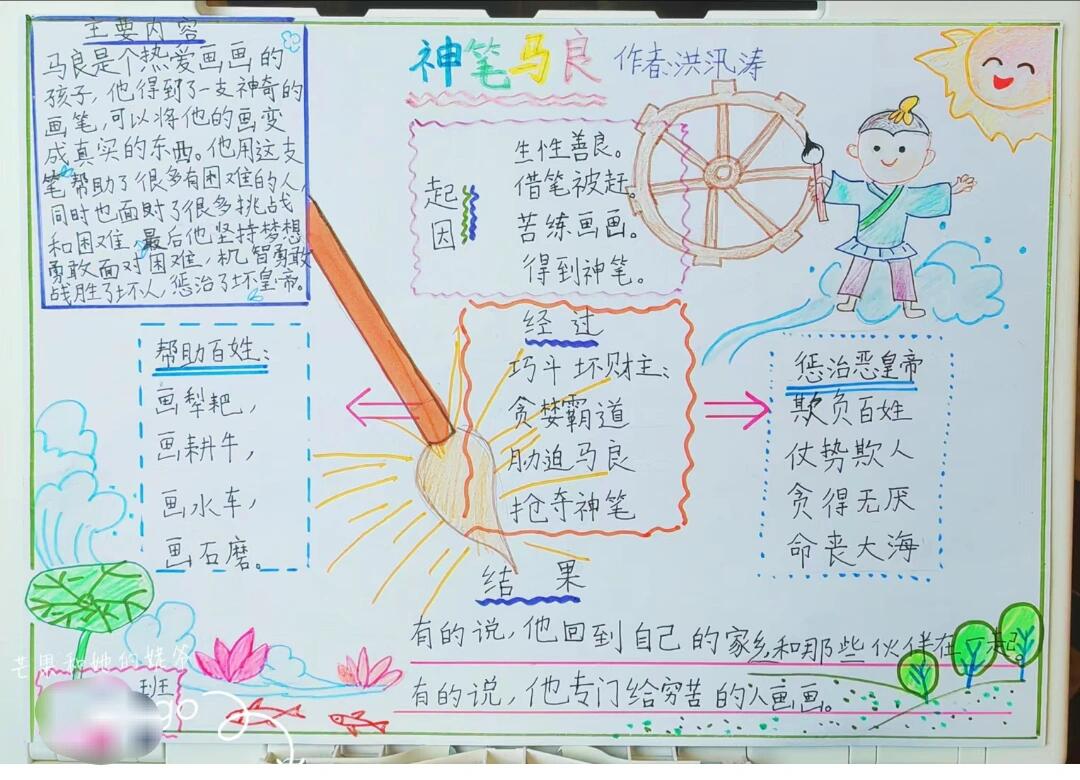 主要内容
马良是个热爱画画的
孩子，他得到了一支神奇的
画笔，可以将他的画变
成真实的东西。他用这支
笔帮助了很多有困难的人，
同时也面对了很多挑战
和困难，最后他坚持梦想
勇敢面对困难，机智勇敢
战胜了坏人，惩治了坏皇帝。
神笔马良 作者:洪汛涛
起因
生性善良。
借笔被赶。
苦练画画。
得到神笔。
帮助百姓：
画犁耙，
画耕牛，
画水车，
画石磨。
经过
巧斗坏财主：
贪婪霸道
胁迫马良
抢夺神笔
惩治恶皇帝
欺负百姓
仗势欺人
贪得无厌
命丧大海
结果
有的说，他回到自己的家乡和那些伙伴在一起。
有的说，他专门给穷苦的人画画。
芒果和她的姥爷
班
go